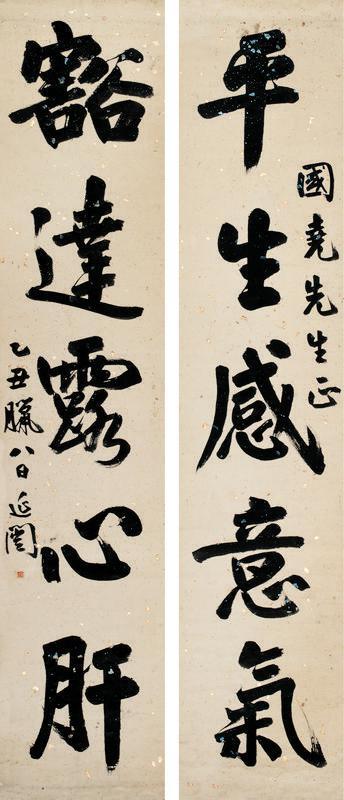 國堯先生正
平生感意氣
豁達露心肝
乙丑臘八日 延闓